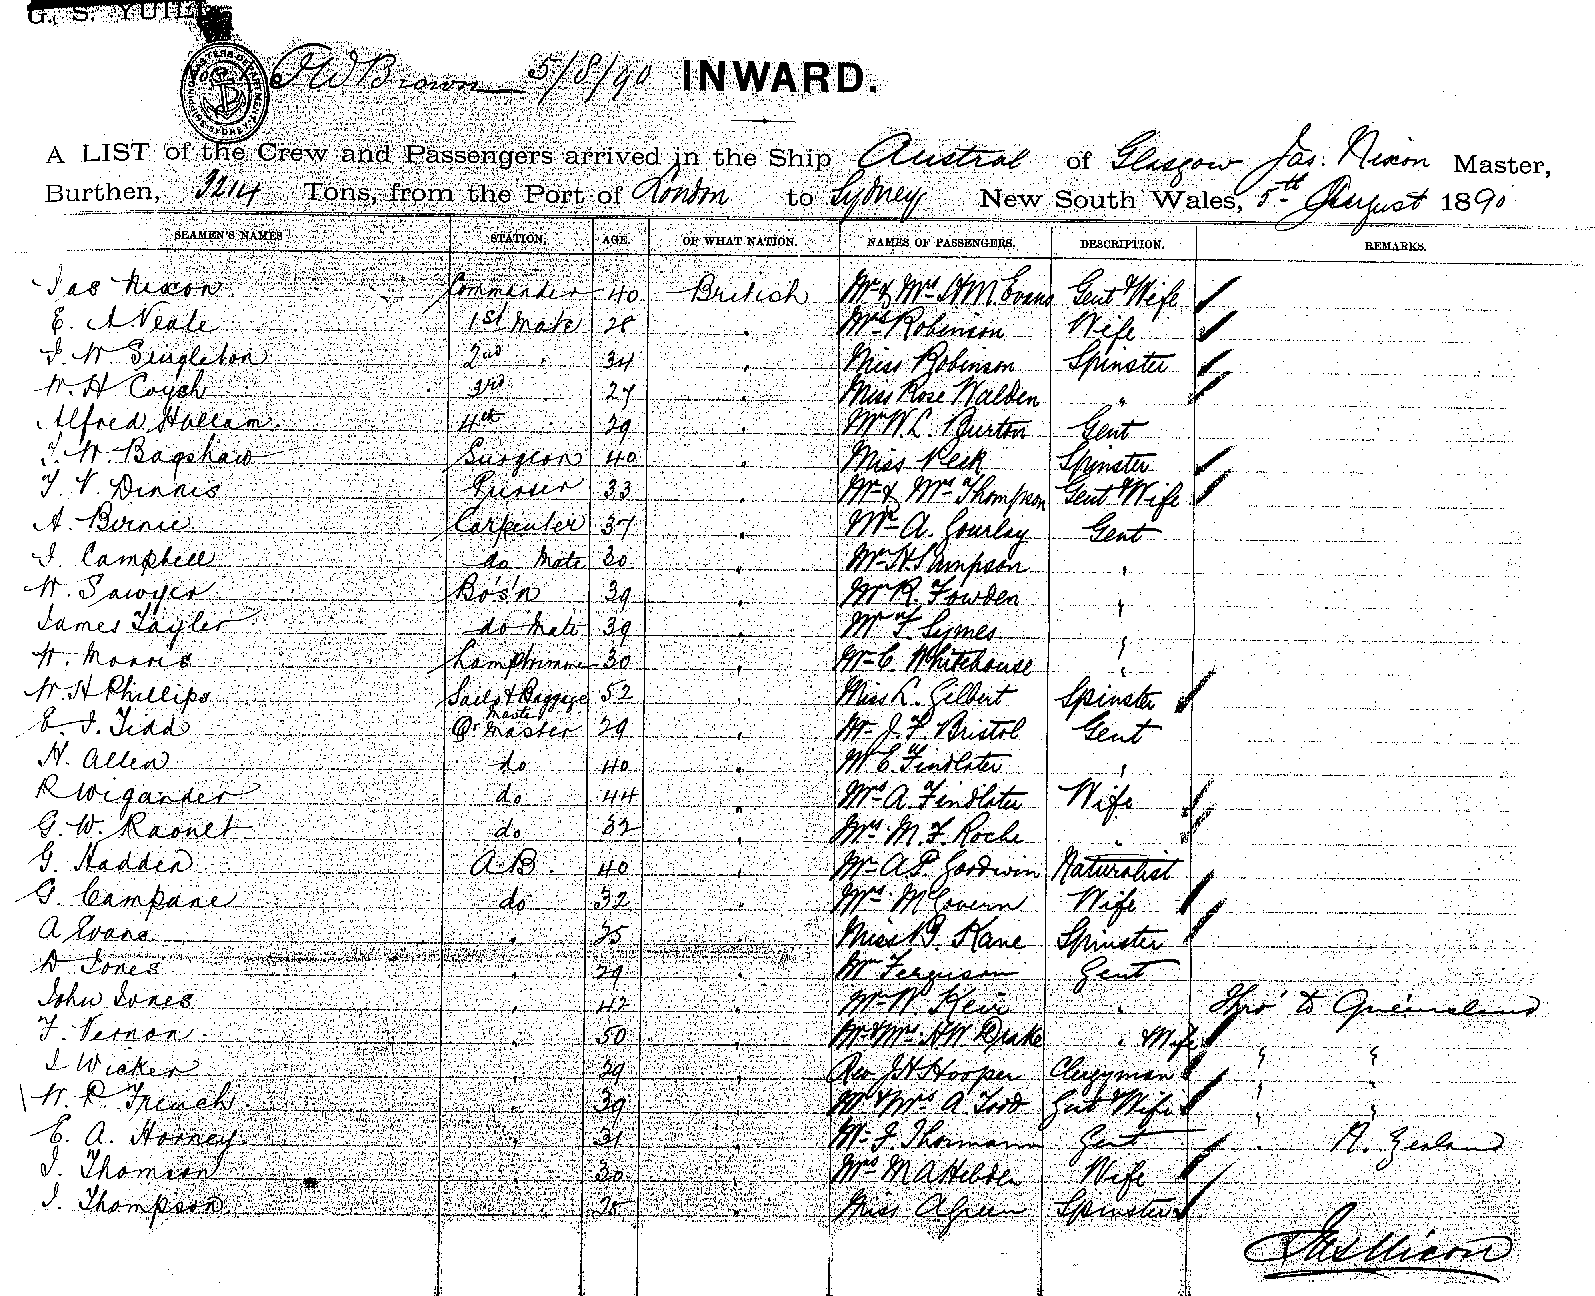 G. S. YUILL
J W Brown 5/8/90 INWARD.
A LIST of the Crew and Passengers arrived in the Ship Austral of Glasgow Jas. Nixon Master,
Burthen, 3214 Tons, from the Port of London to Sydney New South Wales, 5th August 1890
SEAMEN'S NAMES STATION. AGE. OF WHAT NATION. NAMES OF PASSENGERS. DESCRIPTION. REMARKS.
Jas Nixon Commander 40 British Mr & Mrs H M Evans Gent & Wife
E. A Veale 1st Mate 28 " Mrs Robinson Wife
J. W Singleton 2nd " 34 " Miss Robinson Spinster
W. H Coysh 3rd 27 " Miss Rose Walden "
Alfred Hallam 4th 29 " Mr W. L. Burton Gent
J. W. Bagshaw Surgeon 40 " Miss Peck Spinster
F. V. Dinnis Purser 33 " Mr & Mrs Thompson Gent & Wife
A. Birnie Carpenter 37 " Mr A. Gourlay Gent
J. Campbell do Mate 30 " Mr H. Simpson "
W. Sawyer Bo's'n 39 " Mr R. Fowden "
James Tayler do Mate 39 " Mr F Symes "
W. Morris Lamptrimmer 30 " Mr C. Whitehouse "
W. H Phillips Sails & Baggage Master 52 " Miss L. Gilbert Spinster
E. J. Tidd Qr Master 29 " Mr J. F. Bristol Gent
H. Allen do 40 " Mr E. Findlater "
R Wigander do 44 " Mrs A. Findlater Wife
G. W. Raonet do 32 " Mrs M. F. Roche "
G. Hadden A.B. 40 " Mr A P. Goodwin Naturalist
G. Campane do 32 " Mrs McGovern Wife
A Evans " 25 " Miss B. Kane Spinster
D Jones " 29 " Mr Ferguson Gent
John Jones " 42 " Mr W. Keir " Thro' to Queensland
F. Vernon " 50 " Mr & Mrs H W Drake " & Wife " "
J Wicker " 29 " Rev J H Hooper Clergyman " "
W. R. French " 39 " Mr & Mrs A Todd Gent & Wife " "
E. A. Horney " 31 " Mr J. Thormann Gent " N. Zealand
J. Thomson " 30 " Mrs M A Hebden Wife
J. Thompson " 25 " Miss A Green Spinster
Jas Nixon